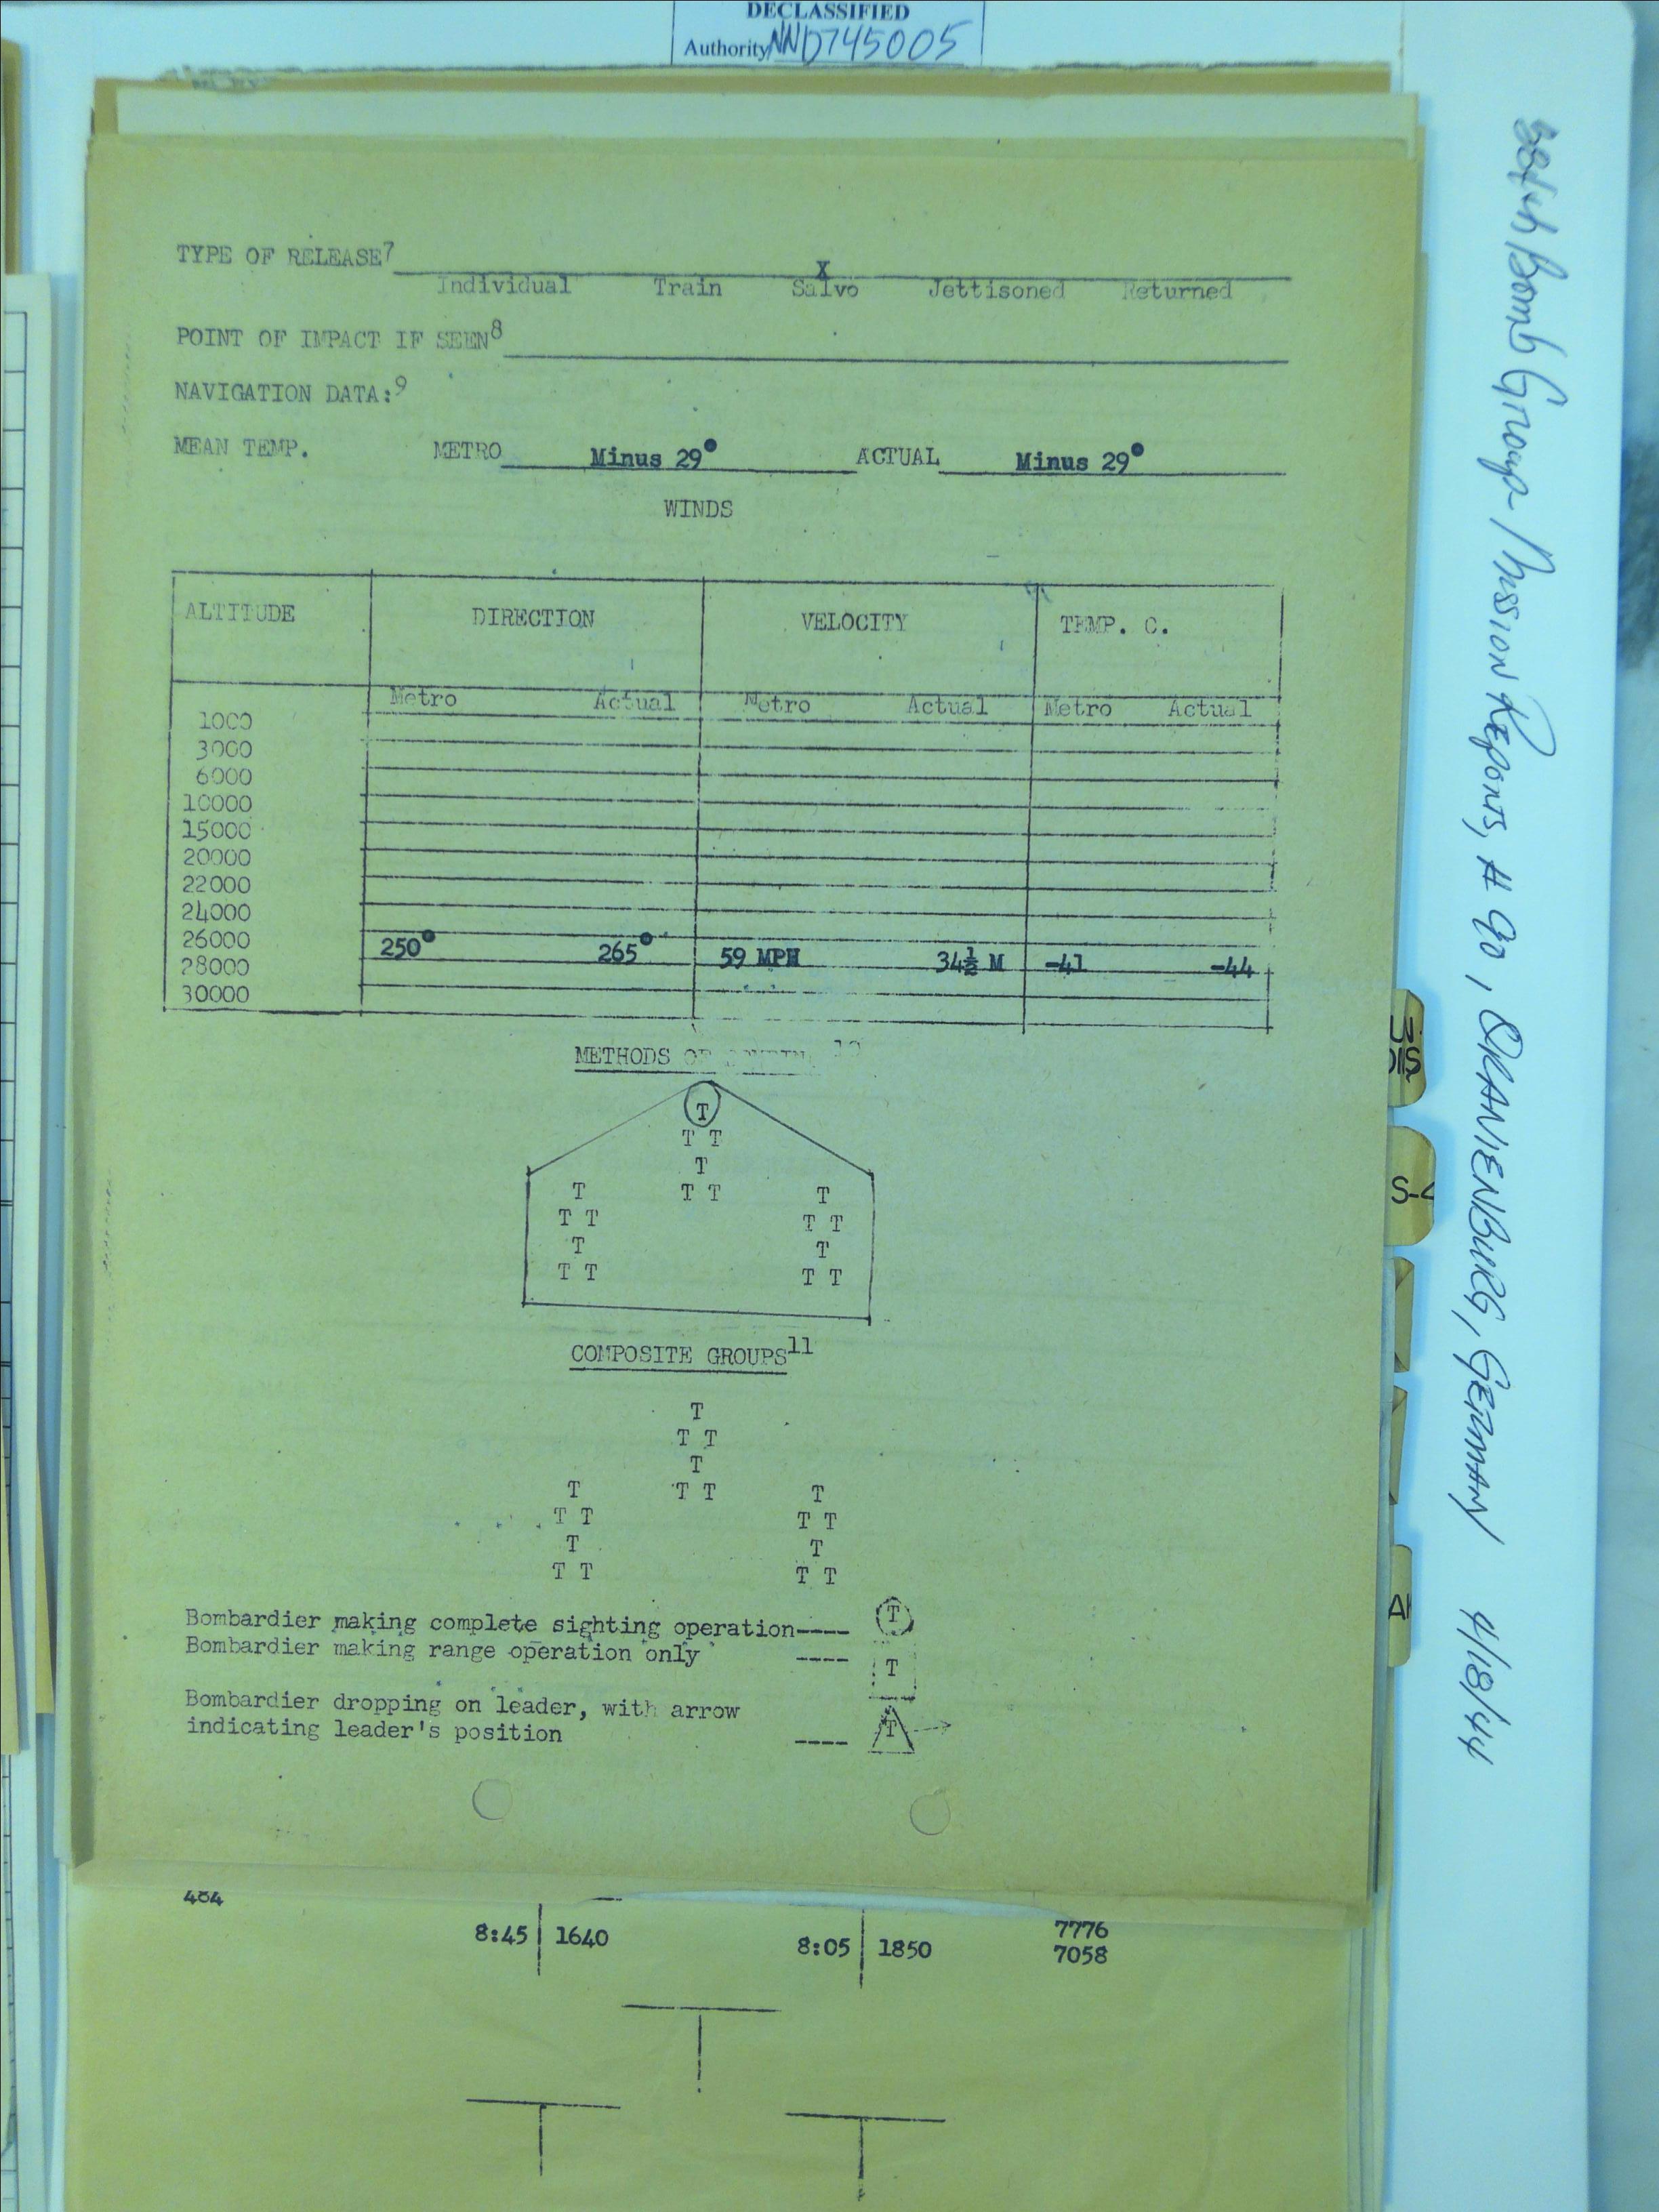 DECLASSIFIED
Authority NND745005
TYPE OF RELEASE7
X
Individual Train Salvo Jettisoned Returned
POINT OF IMPACT IF SEEN8
NAVIGATION DATA:9
MEAN TEMP. METRO Minus 29° ACTUAL Minus 29°
WINDS
ALTITUDE DIRECTION VELOCITY TEMP. C.
Metro Actual Metro Actual Metro Actual
1000
3000
6000
10000
15000
20000
22000
24000
26000 250° 265° 59 MPH 34½ M -41 -44
28000
30000
METHODS OF
T
T T
T
T T T T
T T T T
T T
T T T T
COMPOSITE GROUPS11
T
T T
T
T T T T
T T T T
T T
T T T T
Bombardier making complete sighting operation---- T
Bombardier making range operation only ---- T
Bombardier dropping on leader, with arrow
indicating leader's position ---- T
484
8:45 1640 8:05 1850 7776
7058
Bomb Group / Mission Reports, # 90, ORANIENBURG, GERMANY 4/18/44
S-2